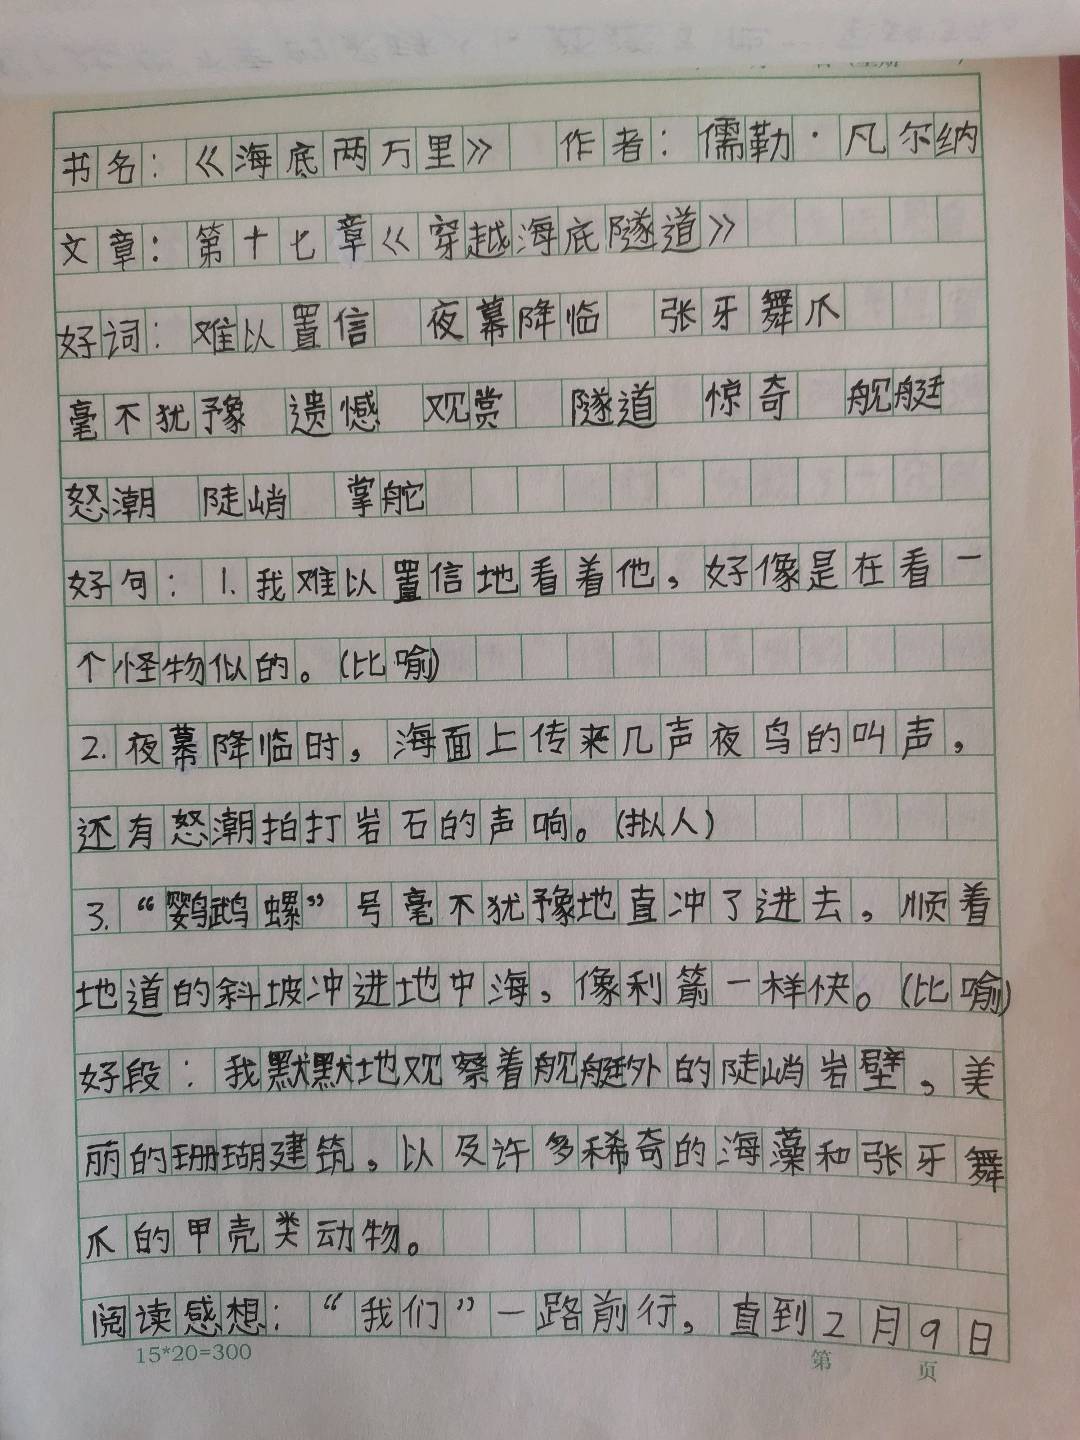 书名：《海底两万里》 作者：儒勒·凡尔纳
文章：第十七章《穿越海底隧道》
好词：难以置信 夜幕降临 张牙舞爪
毫不犹豫 遗憾 观赏 隧道 惊奇 舰艇
怒潮 陡峭 掌舵
好句：1.我难以置信地看着他，好像是在看一
个怪物似的。（比喻）
2.夜幕降临时，海面上传来几声夜鸟的叫声，
还有怒潮拍打岩石的声响。（拟人）
3.“鹦鹉螺”号毫不犹豫地直冲了进去，顺着
地道的斜坡冲进地中海，像利箭一样快。（比喻）
好段：我默默地观察着舰艇外的陡峭岩壁，美
丽的珊瑚建筑，以及许多稀奇的海藻和张牙舞
爪的甲壳类动物。
阅读感想：“我们”一路前行，直到2月9日
15*20=300 第 页